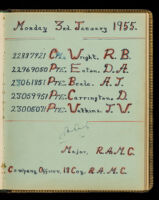 Monday 3rd January 1955.
22887921 Cpl. Wright, R. B.
22969050 Pte. Eaton, D. A.
23061851 Pte. Beale, A. J.
23059951 Pte. Carrington, D.
23005071 Pte. Watkins, J. W.
Major, R.A.M.C.
Company Officer, 18 Coy, R.A.M.C.